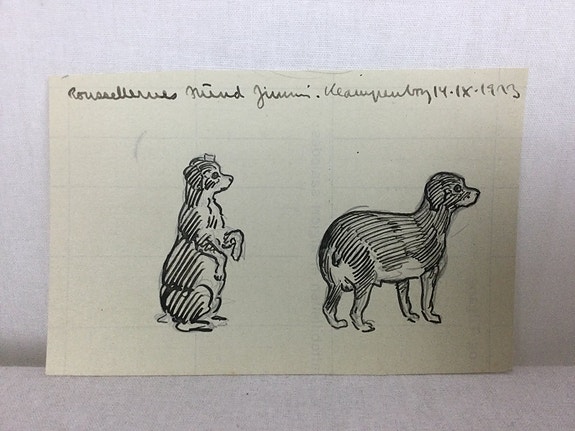 Rousellernes Hund Jimmi. Klampenborg 14·IX·1923